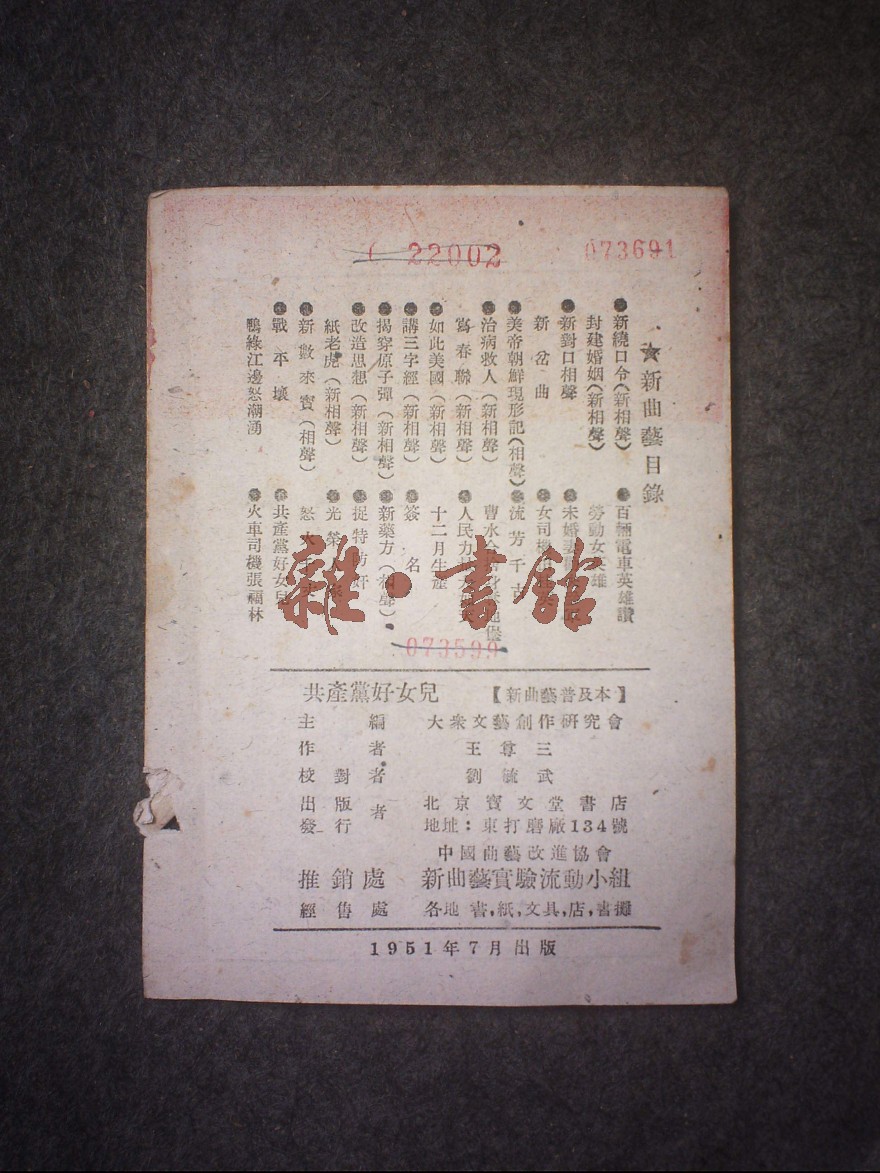 22002
073691
★新曲藝目錄
●新繞口令(新相聲)
封建婚姻(新相聲)
●新對口相聲
新岔曲
●美帝朝鮮現形記(相聲)
●治病救人(新相聲)
寫春聯(新相聲)
●如此美國(新相聲)
●講三字經(新相聲)
●揭穿原子彈(新相聲)
●改造思想(新相聲)
紙老虎(新相聲)
●新數來寶(相聲)
●戰平壤
鴨綠江邊怒潮湧
●百輛電車英雄讚
勞動女英雄
●未婚妻
●女司機
●流芳千古
曹水
●人民力
十二月生產
●簽名
●新藥方(相聲)
●捉特防奸
●光榮
怒火
●共產黨好女兒
●火車司機張福林
雜·書館
073599
共產黨好女兒【新曲藝普及本】
主編 大衆文藝創作研究會
作者 王尊三
校對者 劉毓武
出版發行者 北京寶文堂書店
地址:東打磨廠134號
中國曲藝改進協會
推銷處 新曲藝實驗流動小組
經售處 各地書,紙,文具,店,書攤
1951年7月出版